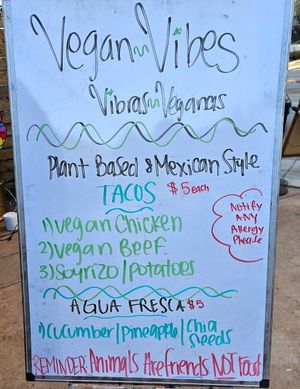 Vegan Vibes
Vibras Veganas
Plant Based & Mexican Style
TACOS $5 each
1) Vegan Chicken
2) Vegan Beef
3) Soyrizo/potatoes
NOTIFY
ANY
Allergy
Please
AGUA FRESCA $5
1) Cucumber/Pineapple/Chia Seeds
REMINDER Animals Are friends NOT Food